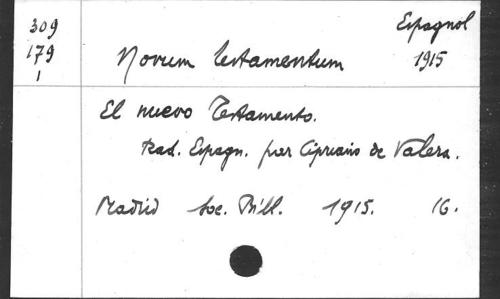 309
179
1
Espagnol
1915
Novum testamentum
El nuevo Testamento.
trad. Espagn. par Cipriano de Valera.
Madrid Soc. Bibl. 1915. 16.